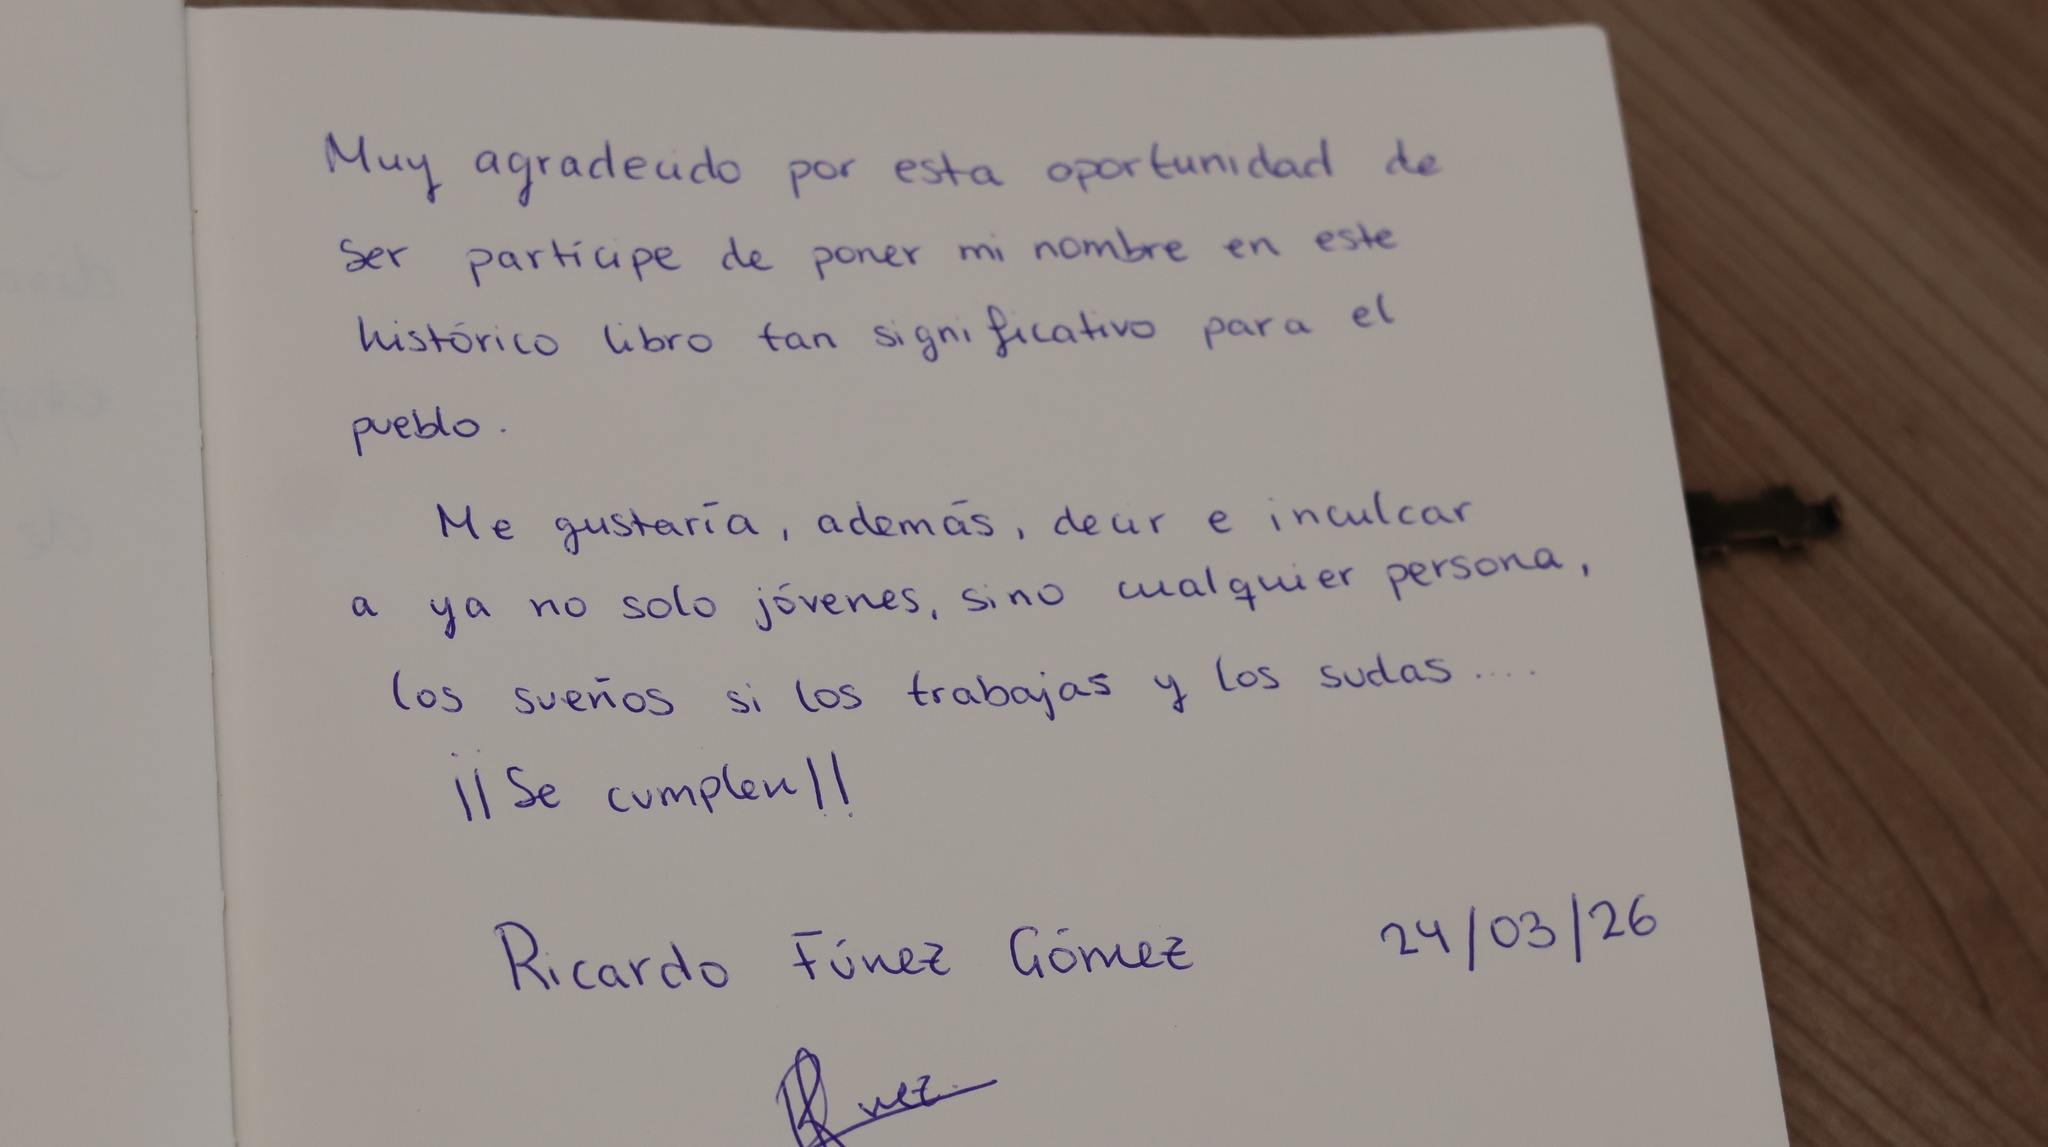 Muy agradecido por esta oportunidad de
ser partícipe de poner mi nombre en este
histórico libro tan significativo para el
pueblo.
Me gustaría, además, decir e inculcar
a ya no solo jóvenes, sino cualquier persona,
los sueños si los trabajas y los sudas....
¡¡Se cumplen!!
Ricardo Fúnez Gómez 24/03/26